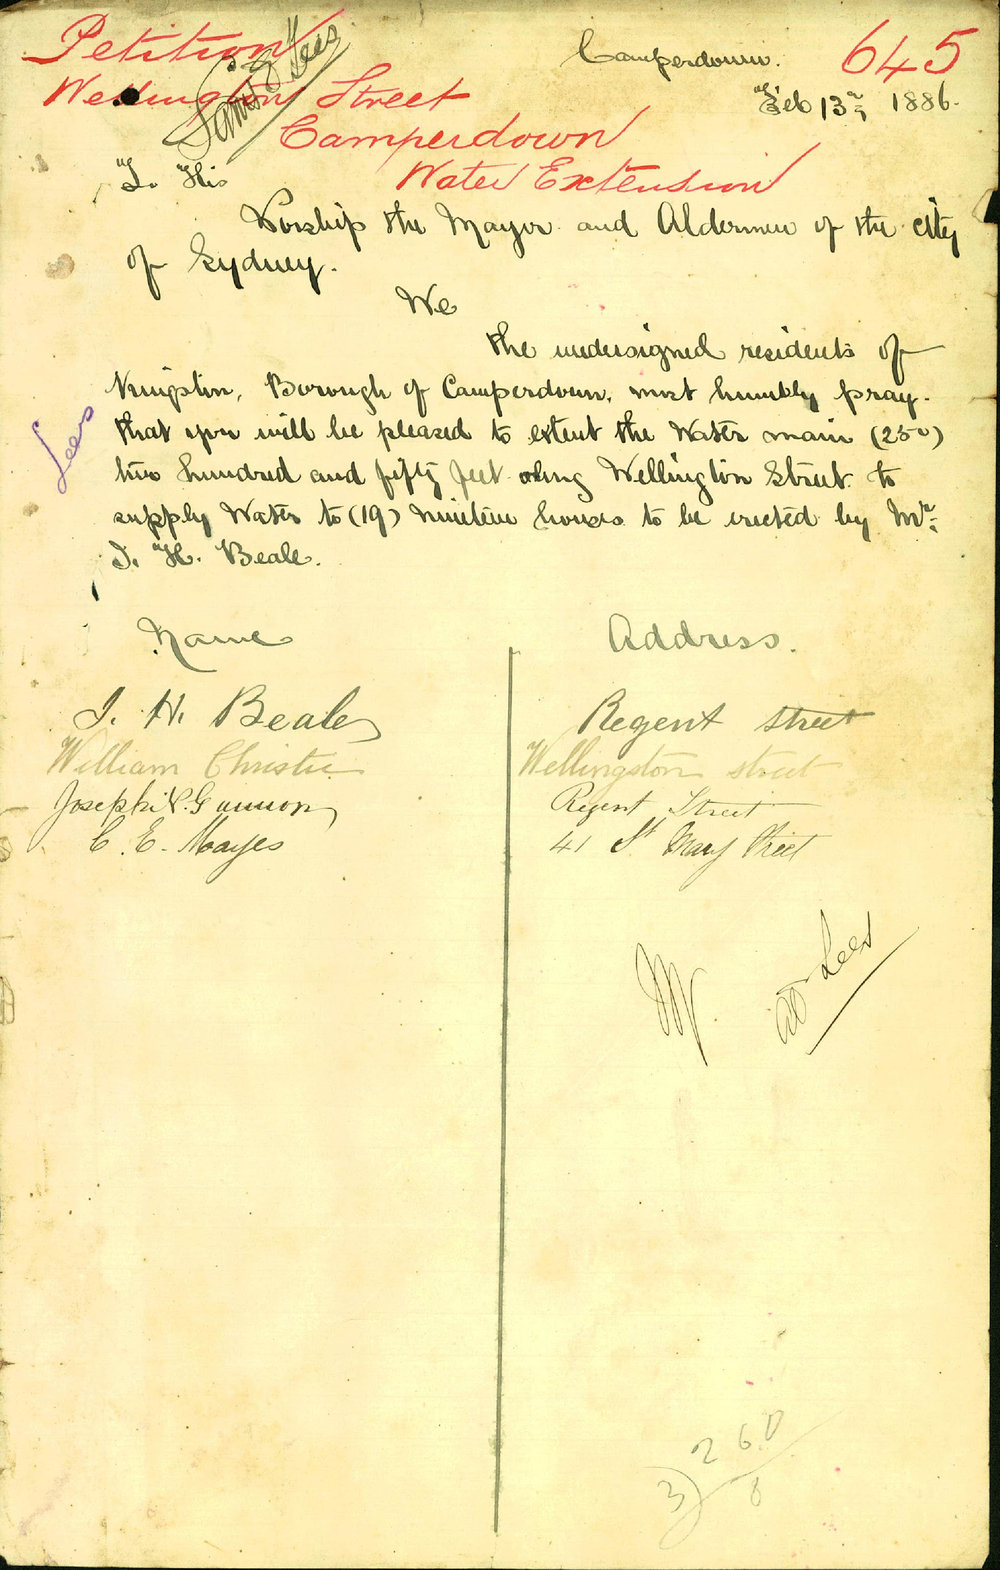 Petition
645
Camperdown.
Wellington Street
Feb 13th 1886.
Camperdown
Water Extension
To His
Worship the Mayor and Aldermen of the City
of Sydney.
We
the undersigned residents of
Borough of Camperdown, most humbly pray.
that you will be pleased to extent the Water main (250)
two hundred and fifty feet along Wellington Street to
supply Water to (19) nineteen houses to be erected by Mr
J. H. Beale.
Lees
Name Address.
J. H. Beale Regent street
William Christie Wellingston street
Joseph Gannon Regent Street
C. E. Mayes 41 St Mary Street
Lees
260
3)